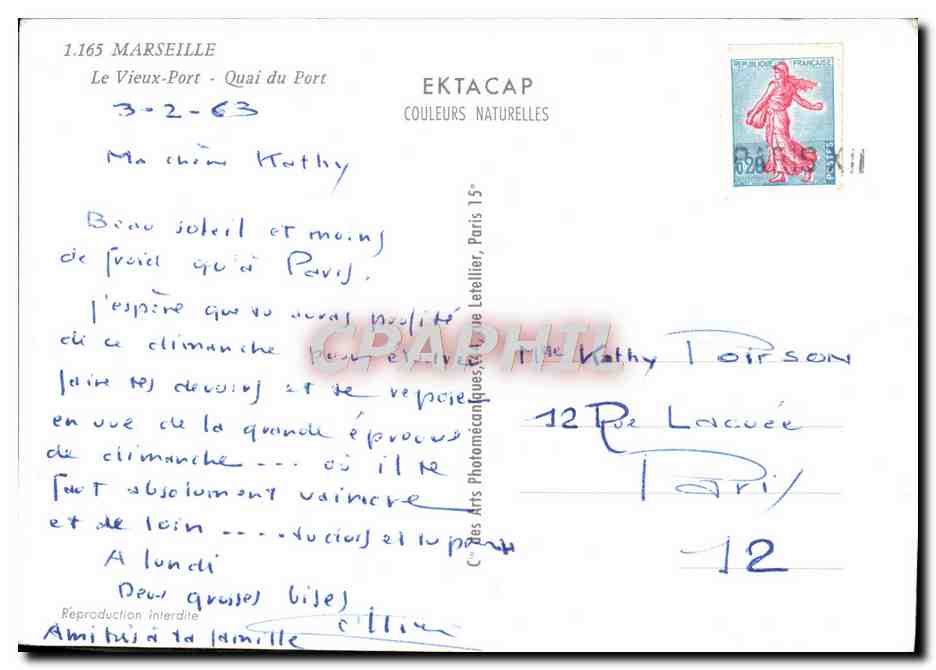 1.165 MARSEILLE
Le Vieux-Port - Quai du Port
3-2-63
Ma chère Kathy
Beau soleil et moins
de froid qu'à Paris.
j'espère que tu auras profité
de ce dimanche pour
faire tes devoirs et te reposer
en vue de la grande épreuve
de dimanche ... où il te
faut absolument vaincre
et de loin .... tu dois et tu peux
A lundi
Deux grosses bises
Reproduction interdite
Amitiés à ta famille
EKTACAP
COULEURS NATURELLES
Cie des Arts Photomécaniques, rue Letellier, Paris 15e
REPUBLIQUE FRANÇAISE
0,20
POSTES
PARIS XII
CPAPHIL
Mlle Kathy POIRSON
12 Rue Lacuée
Paris
12